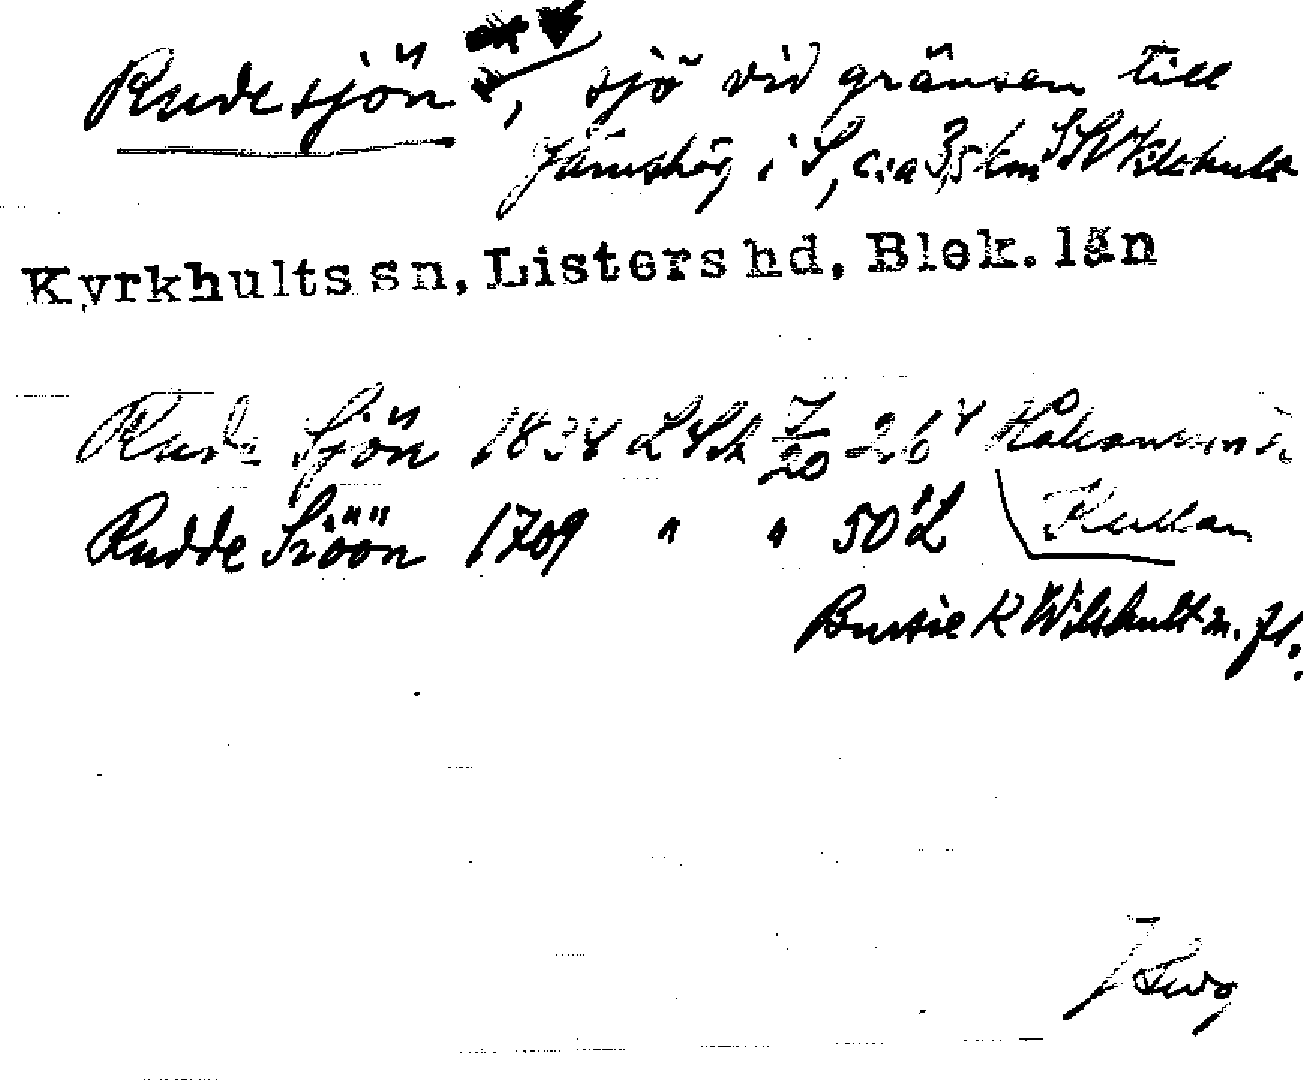 Rudesjön, sjö vid gränsen till
Jämshög i S, c:a 3,5 km SSV Vilshult
Kyrkhults sn, Listers hd, Blek. län
Rude Sjön 1834 LSA 7/20-26
Rudde Siöön 1709 " " 50
Kullan
Bursie K Wilshult m. fl.